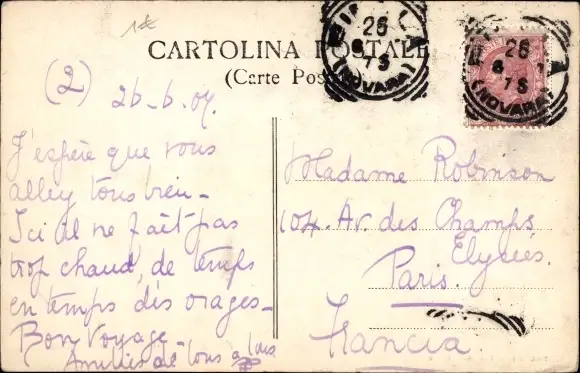 1€
CARTOLINA POSTALE
(Carte Pos
26
6
7S
(NOVARA)
26
6
7S
(NOVARA)
(2) 26-6-07.
J'espère que vous
allez tous bien -
Ici il ne fait pas
trop chaud, de temps
en temps des orages -
Bon Voyage -
Amitiés de tous à tous
Madame Robinson
104. Av. des Champs
Elysées.
Paris.
Francia.